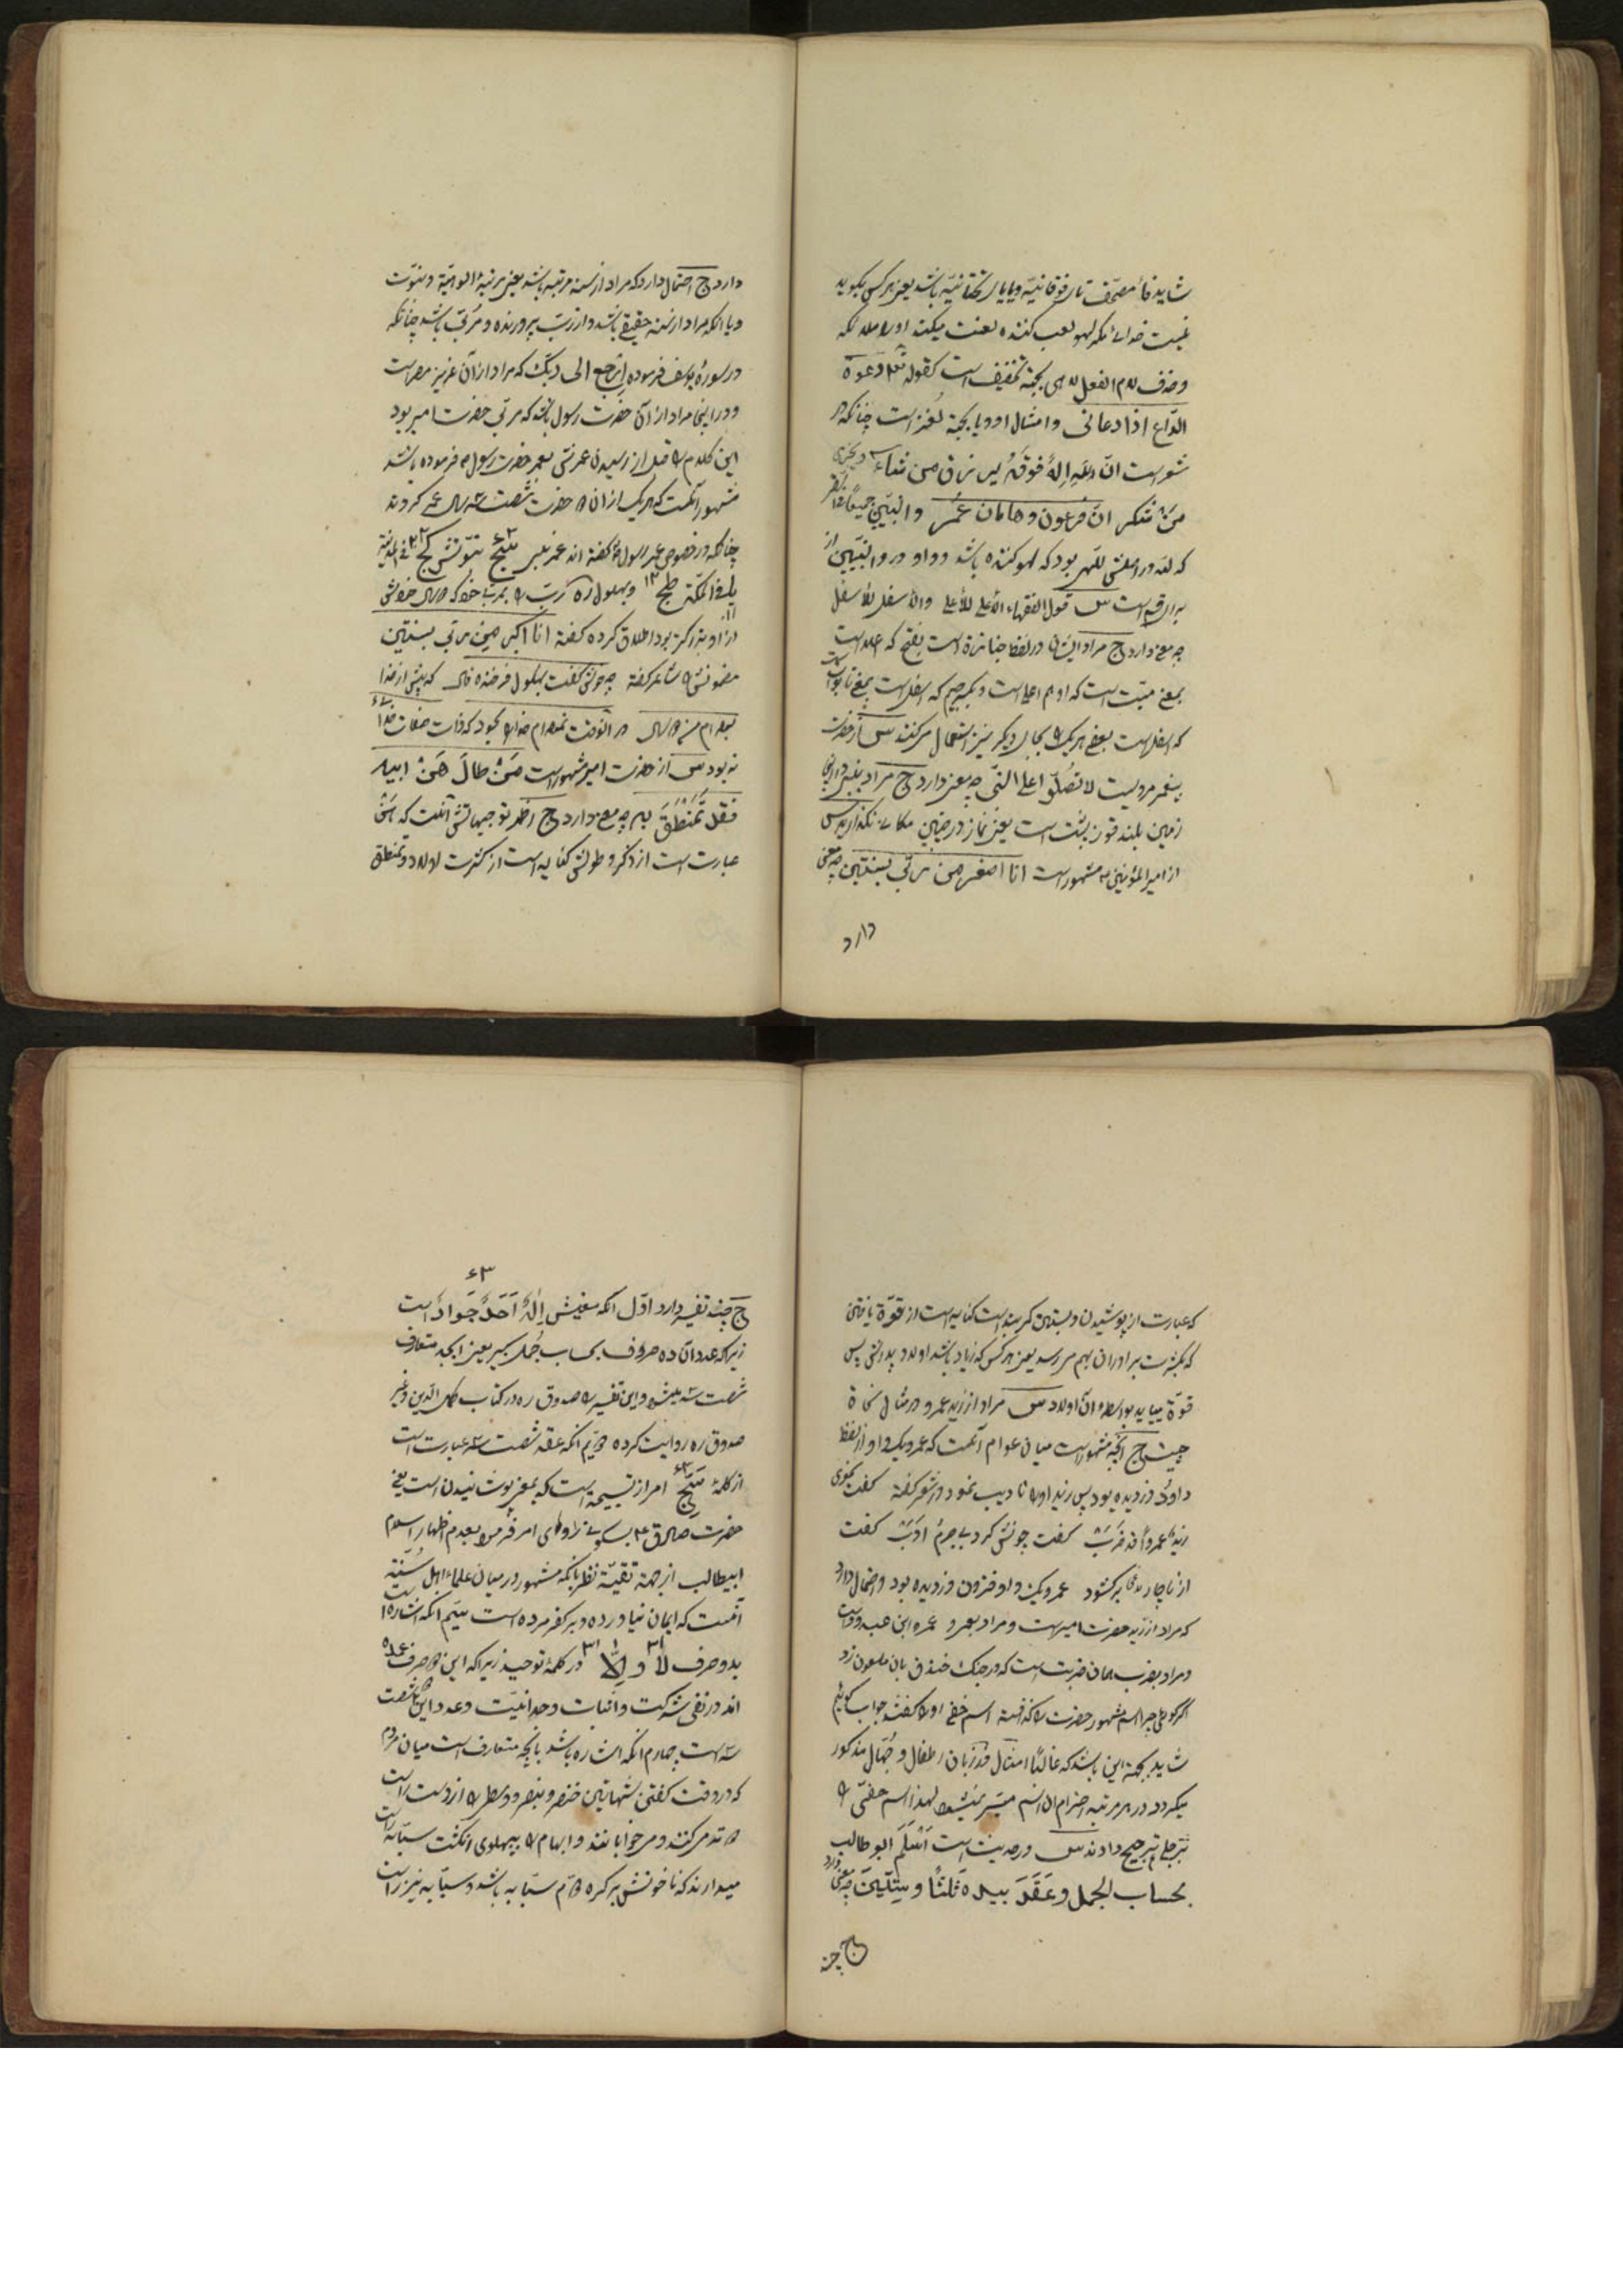 شاید فاء مصحّف تاء فوقانیّه و یا یاء تحتانیّه باشد یعنی هرکس بگوید
نیست خدا مگر لهو لعب کننده لعنت میکند او را ملائکه
و حذف لام الفعل لاهی بجهة تخفیف است کقوله تعالی دعوة
الدّاع اذا دعانی و امثال او و یا بجهة لغز است چنانکه در
شعر است انّ اللّه اله فوقه یرزق من یشاء و دیگری
من شکر انّ فرعون و هامان عمر و النبیّین جمیعاً
که لفه در اصلش للهر بود که لهو کننده باشد و واو در والنبیّین از
برای قسم است س قول الفقهاء الأعلی للأعلی والأسفل للأسفل
چه معنی دارد ج مراد ایشان در لفظ جنازة است بفتح که اعلا است
بمعنی میّت است که او هم اعلی است و بکسر جیم که اسفل است بمعنی تابوت است
که اسفل است بعضی هریک را بجای دیگر نیز استعمال میکنند س از حضرت
پیغمبر مرویست لا تصلّوا علی النّبی چه معنی دارد ج مراد بنبی در اینجا
زمین بلند قوز پشت است یعنی نماز در چنین مکانی نگذارید س
از امیرالمؤمنین ع مشهور است انا اصغر من ربّی بسنتین چه معنی
دارد
دارد ج احتمال دارد که مراد از سنه مرتبه باشد یعنی مرتبهٔ الوهیّة و نبوّت
و یا آنکه مراد از سنه حقیقی باشد و از ربّ پرورنده و مربّی باشد چنانکه
در سورهٔ یوسف فرموده ارجع الی ربّک که مراد از آن عزیز مصر است
و در اینجا مراد از آن حضرت رسول باشد که مربّی حضرت امیر بود
این کلام را قبل از رسیدن عمرش بعمر حضرت رسول ص فرموده باشد
مشهور آنست که هریک از آن دو حضرت شصت سه سال عمر کردند
چنانکه در خصوص عمر رسول گفته اند عمر نبی سج ۶۳ نبوّتش کج ۲۳ فی المدینة
یا و فی المکّة طج ۱۳ و بهلول ره ربّ را بمربّی خود که دو سال خودش
از او بزرگتر بود اطلاق کرده گفته انا اکبر من ربّی بسنتین
مضمونش را شاعر گفته چه خوش گفت بهلول فرخنده فال که پیش از خدا
بوده ام من دو سال در آنوقت نبودم خدا را که ذات صفات خدا
نه بود س از حضرت امیر مشهور است من طال هن ابیه
فقل تمنطق به چه معنی دارد ج اظهر توجیهاتش آنست که هن
عبارت است از ذکر و طولش کنایه است از کثرت اولاد و تمنطق
که عبارت از پوشیدن و بستن کمربند است کنایه است از قوّة یافتن
که بکثرت برادران بهم میرسد یعنی هرکس که زیاد باشد اولاد پدرش پس
قوّة مییابد بواسطه آن اولاد س مراد از زید عمرو در مثال نحاة
چیست ج آنچه مشهور است میان عوام آنست که عمرو یک واو از لفظ
داود دزدیده بود پس زید او را تادیب نمود و شاعر گفته گفت نحوی
زید عمرواً قد ضرب گفت چونش کرد بی جرم ادب گفت
از ناچار برگشود عمرو یک واو فزون دزدیده بود و احتمال دارد
که مراد از زید حضرت امیر است و مراد بعمرو عمرو ابن عبدود است
و مراد بضرب همان ضربت است که در جنگ خندق بآن ملعون زد
اگر گوئی چرا اسم مشهور حضرت را نگفته اسم خفی او را گفتند جواب گوئیم
شاید بجهة این باشد که غالباً امثال در زبان اطفال و جهّال مذکور
میگردد در هر مرتبه احترام آن اسم میسّر نمیشود لهذا اسم خفی را
بر جلی ترجیح دادند س در حدیث است اسلم ابوطالب
بحساب الجمل و عقد بیده ثلثاً و ستّین چه معنی دارد
ج چند
۶۳
ج چند تفسیر دارد اوّل آنکه معنیش اله احد جواد است
زیرا که عدد آن ده حروف بحساب جمل کبیر یعنی ابجد متعارف
شصت سه میشود و این تفسیر را صدوق ره در کتاب کمال الدّین و غیر
صدوق ره روایت کرده دوّیم آنکه عقد شصت سه عبارت است
از کلمهٔ سبّج ۶۳ امر از تسبیجة است که بمعنی پوشانیدن است یعنی
حضرت صادق ع براوی امر فرمود بعدم اظهار اسلام
ابیطالب از جهة تقیّة نظر بآنکه مشهور در میان علماء اهل سنّة
آنست که ایمان نیاورده و بر کفر مرده است سیّم آنکه اشاره است
بدو حرف لا ۳۱ و الّا ۳۱ ۱ در کلمهٔ توحید زیرا که این دو حرف عمده
اند در نفی شرکت و اثبات وحدانیّت و عدد این شصت
سه است چهارم آنکه اشاره باشد بآنچه متعارف است میان مردم
که در وقت گفتن شهادتین خنصر و بنصر و وسطی را از دست راست
عقد میکنند و میخوابانند و ابهام را بپهلوی انگشت سبّابه راست
میدارند که ناخونش بر گره دوّم سبّابه باشد و سبّابه نیز راست